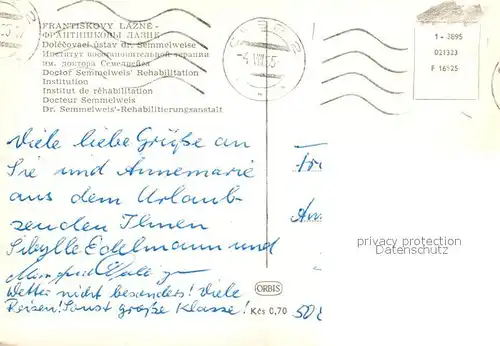 FRANTIŠKOVY LÁZNĚ -
ФРАНТИШКОВЫ ЛАЗНЕ
Doléčovací ústav dr. Semmelweise
Институт восстановительной терапии
им. доктора Семелвейса
Doctor Semmelweis' Rehabilitation
Institution
Institut de réhabilitation
Docteur Semmelweis
Dr. Semmelweis'-Rehabilitierungsanstalt
CHEB 2
-4.VIII.65
1 - 3895
021323
F 16925
Viele liebe Grüße an
Sie und Annemarie
aus dem Urlaub-
senden Ihnen
Sibylle Edelmann und
Wetter nicht besonders! Viele
Reisen! Sonst große Klasse!
ORBIS
Kčs 0,70
privacy protection
Datenschutz
50